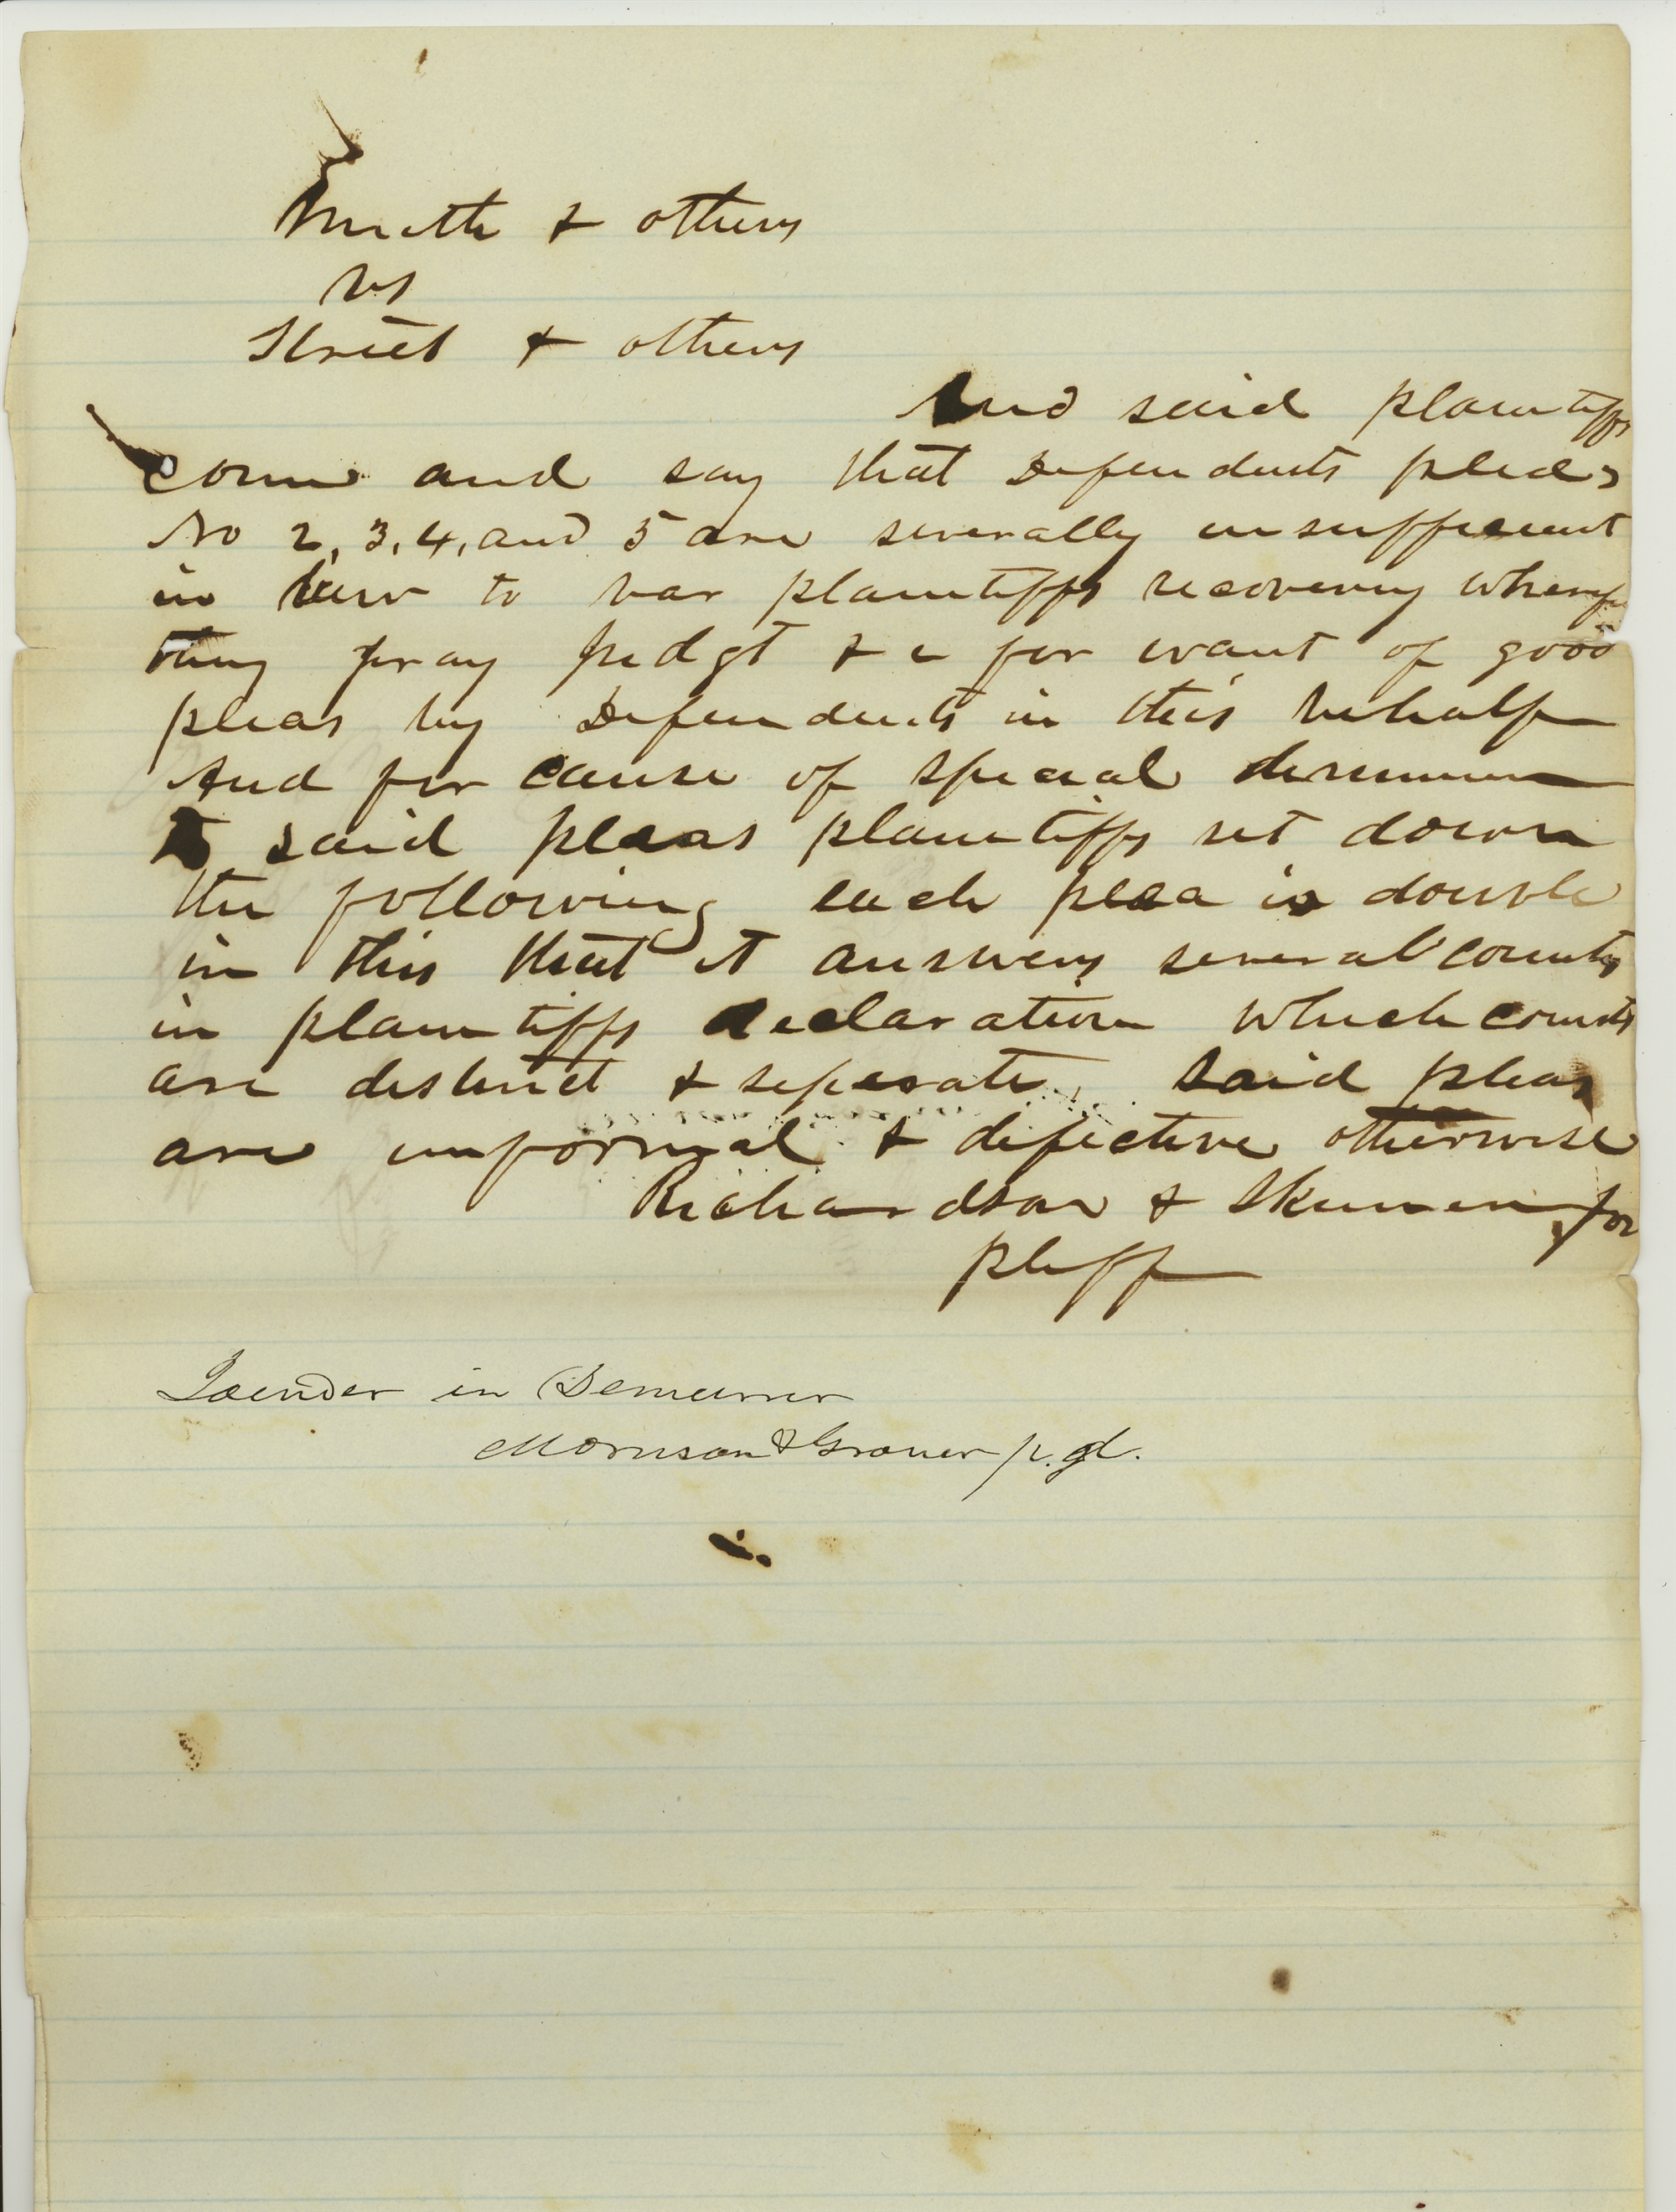 Smith & others
vs
Street & others
And said plaintiffs
come and say that Defendents pleas
No 2, 3, 4, and 5 are severally insufficient
in law to bar plaintiffs recovery wherefre
they pray judgt &c for want of good
pleas by Defendents in this behalf
And for cause of special demurrer
to said pleas plaintiffs set down
the following each plea is double
in this that it answers several counts
in plaintiffs declaration which counts
are distinct & seperate. Said pleas
are unformal & defective otherwise
Richardson & Skinner for
plff
Joinder in Demurrer
Morrison & Grover p.d.